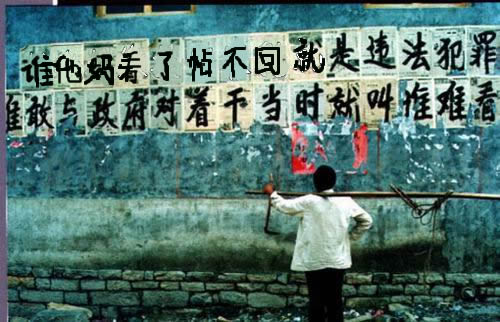 谁他妈看了帖不回就是违法犯罪
谁敢与政府对着干当时就叫谁难看